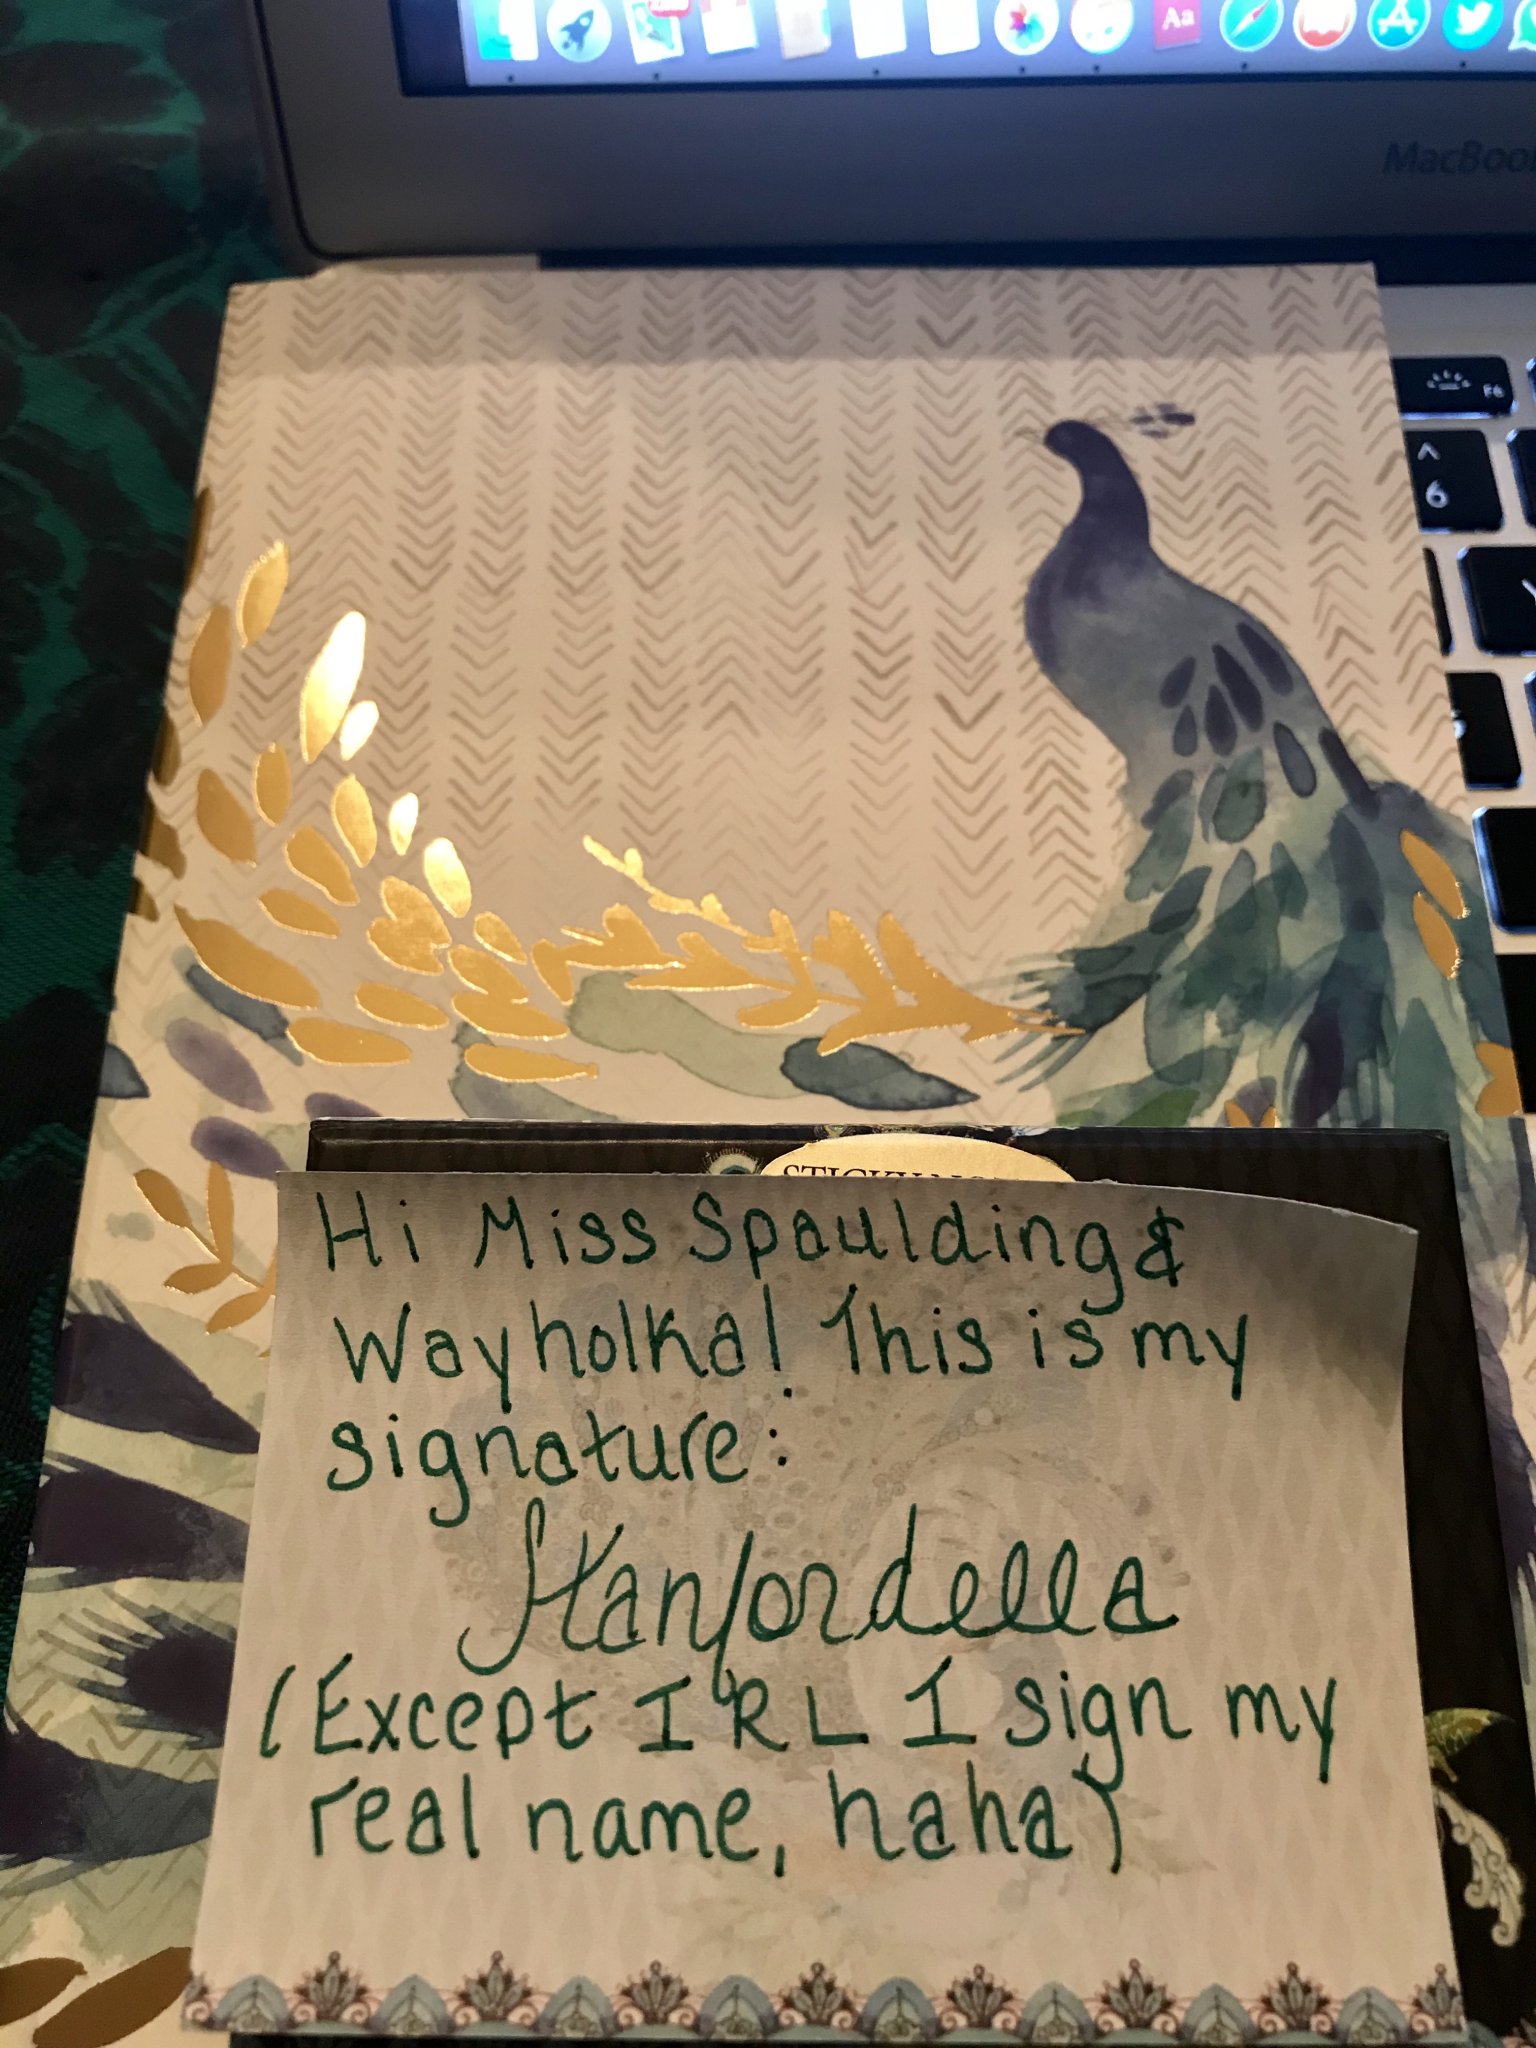 Aa
MacBoo
F6
^
6
Hi Miss Spaulding &
Wayholka! This is my
signature:
Stanfordella
(Except IRL I sign my
real name, haha)